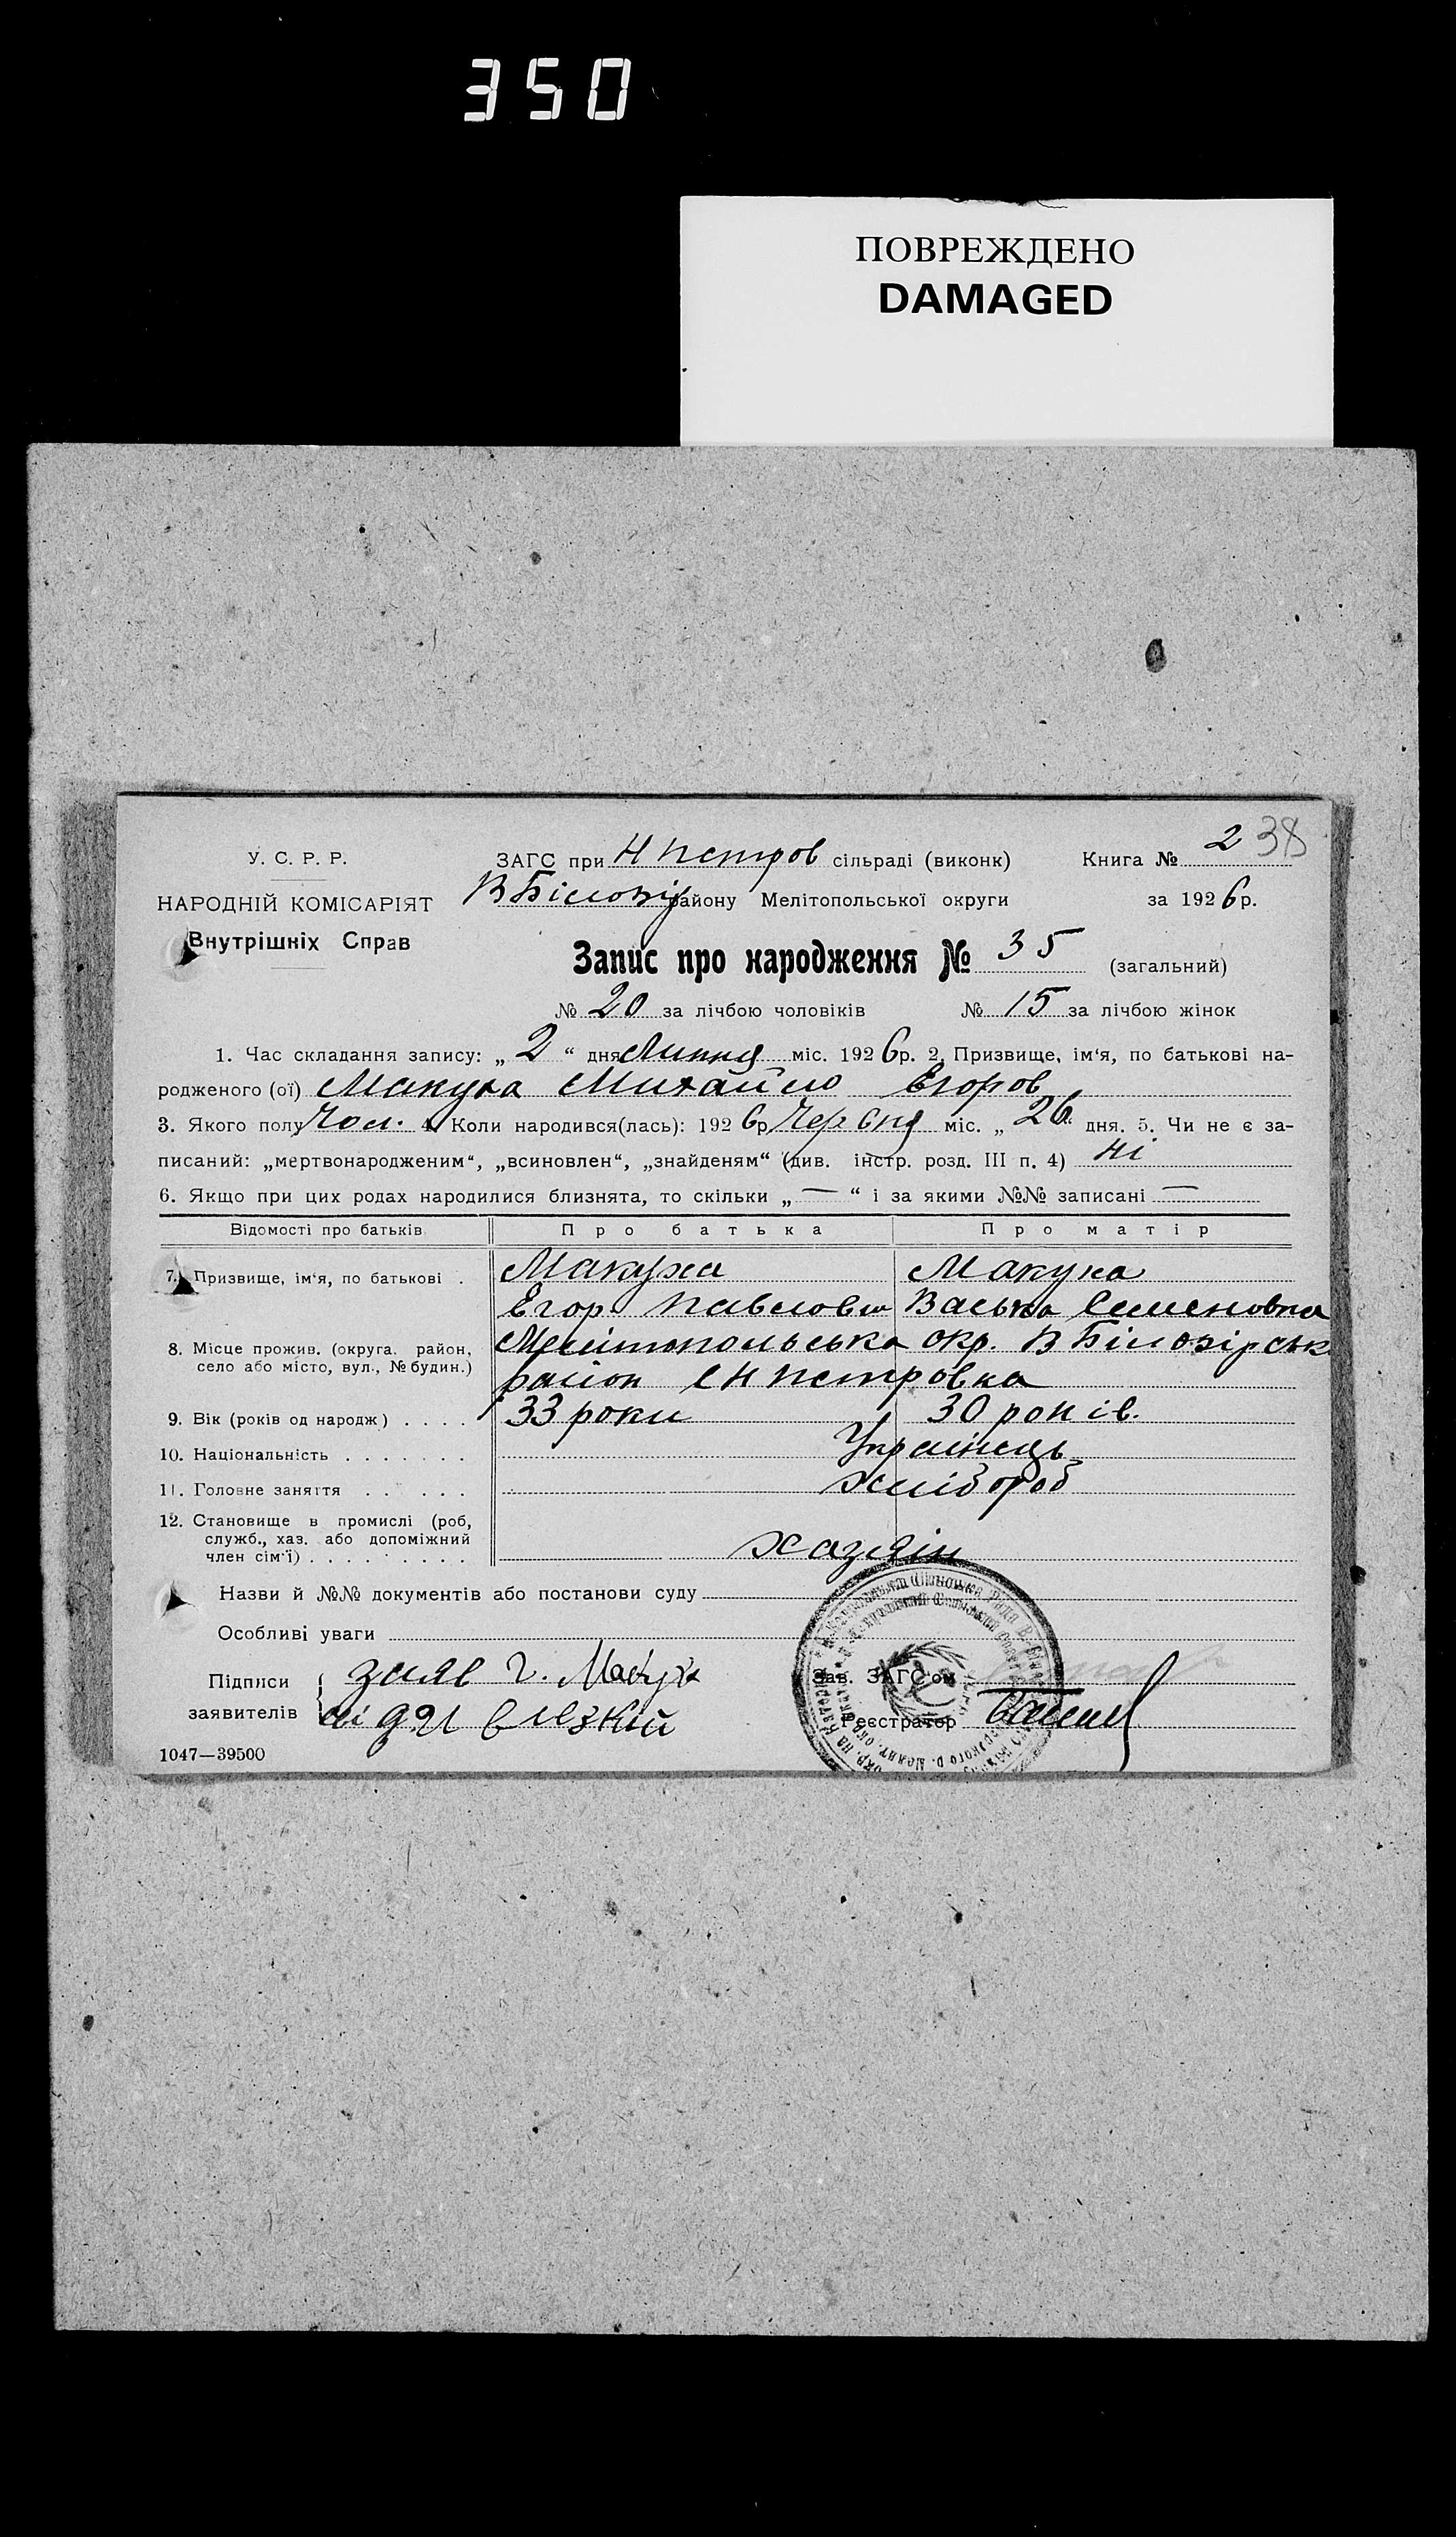 350
ПОВРЕЖДЕНО
DAMAGED
У. С. Р. Р.
НАРОДНІЙ КОМІСАРІЯТ
Внутрішніх Справ
ЗАГС при Н Петров сільраді (виконк)
В Білозір району Мелітопольської округи
Книга № 2 38
за 1926 р.
Запис про народження № 35 (загальний)
№ 20 за лічбою чоловіків № 15 за лічбою жінок
1. Час складання запису: „ 2 “ дня Липня міс. 1926 р. 2. Призвище, ім‘я, по батькові на-
родженого (ої) Макуха Михайло Егоров
3. Якого полу Чол. 4. Коли народився(лась): 1926 р. Червня міс. „ 26 “ дня. 5. Чи не є за-
писаний: „мертвонародженим“, „всиновлен“, „знайденям“ (див. інстр. розд. III п. 4) Ні
6. Якщо при цих родах народилися близнята, то скільки „ — “ і за якими №№ записані —
Відомості про батьків Про батька Про матір
7. Призвище, ім‘я, по батькові . Макуха Макуха
Егор Павлович Васька Семеновна
8. Місце прожив. (округа, район, село або місто, вул., № будин.) Мелітопольська окр. В Білозірськ
район с Н Петровка
9. Вік (років од народж) . . . . 33 роки 30 років.
10. Національність . . . . . . . Українець
11. Головне заняття . . . . . . хлібороб
12. Становище в промислі (роб,
служб., хаз. або допоміжний
член сім‘ї) . . . . . . . . . хазяїн
Назви й №№ документів або постанови суду
Особливі уваги
Підписи
заявителів
Макуха
Зав. ЗАГС‘ом
Реєстратор
1047—39500